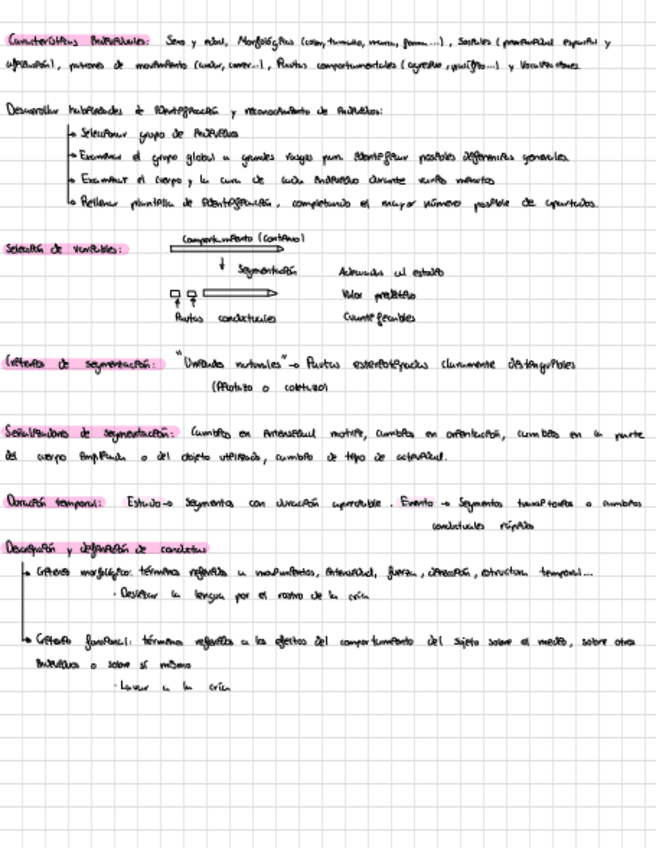 Características individuales: Sexo y edad, Morfológicas (color, tamaño, marca, forma...), Sociales (proximidad espacial y
afiliación), patrones de movimiento (andar, comer...), Pautas comportamentales (agresivo, pacífico...) y Vocalizaciones.
Desarrollar habilidades de identificación y reconocimiento de individuos:
Seleccionar grupo de individuos
Examinar el grupo global a grandes rasgos para identificar posibles diferencias generales.
Examinar el cuerpo y la cara de cada individuo durante varios minutos
Rellenar plantilla de identificación, completando el mayor número posible de apartados.
Comportamiento (continuo)
Selección de variables:
↓ Segmentación Adecuadas al estudio
Valor predictivo
Pautas conductuales Cuantificables
Criterios de segmentación: "Unidades naturales" → Pautas estereotipadas claramente distinguibles
(Pistazo o coletazo)
Señalizadores de segmentación: Cambios en intensidad motriz, cambios en orientación, cambios en la parte
del cuerpo implicada o del objeto utilizado, cambio de tipo de actividad.
Duración temporal: Estado → Segmentos con duración apreciable. Evento → Segmentos transitorios o cambios
conductuales rápidos
Descripción y definición de conductas
Criterio morfológico: términos referidos a movimientos, intensidad, fuerza, dirección, estructura temporal...
· Deslizar la lengua por el rostro de la cría
Criterio funcional: términos referidos a los efectos del comportamiento del sujeto sobre el medio, sobre otros
individuos o sobre sí mismo
· Lavar a la cría